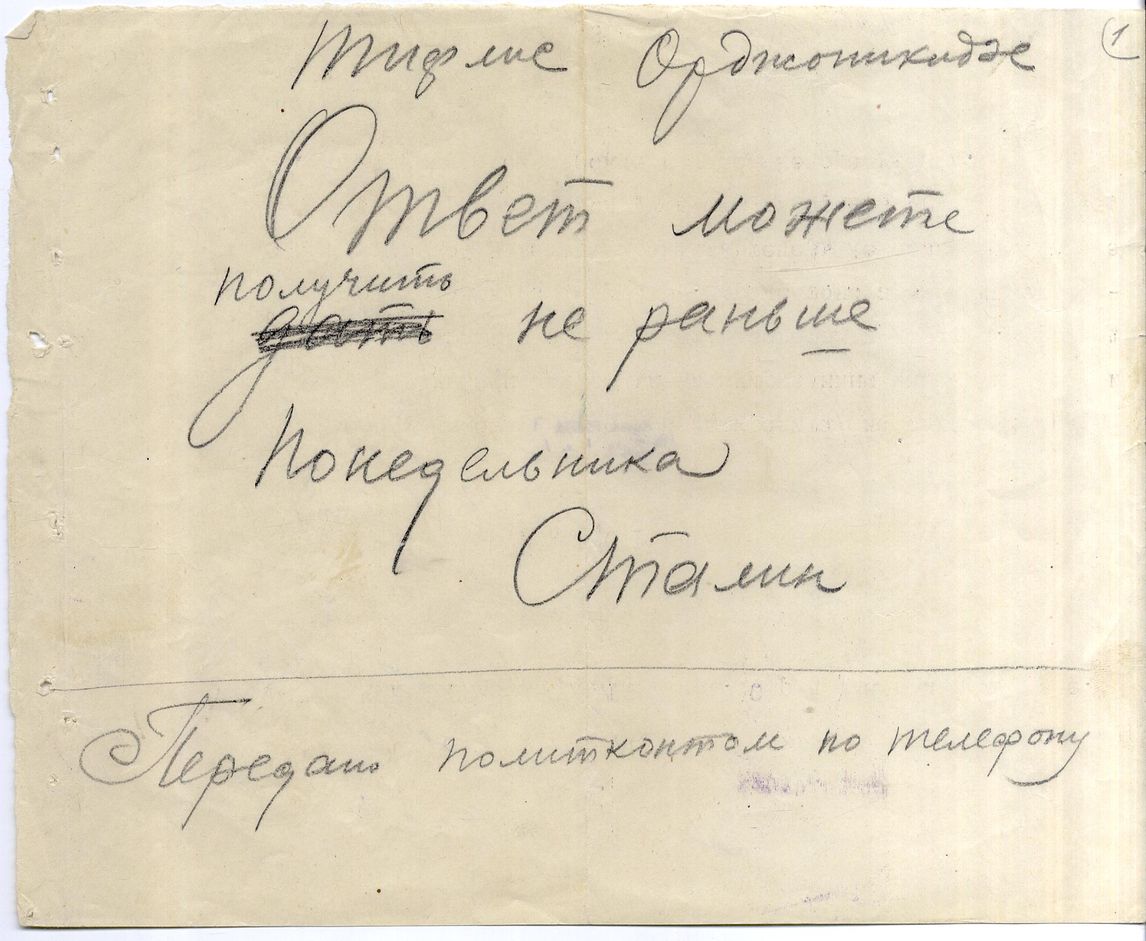 Тифлис Орджоникидзе
1
Ответ можете
получить
дать не раньше
Понедельника
Сталин
Передано по телефону